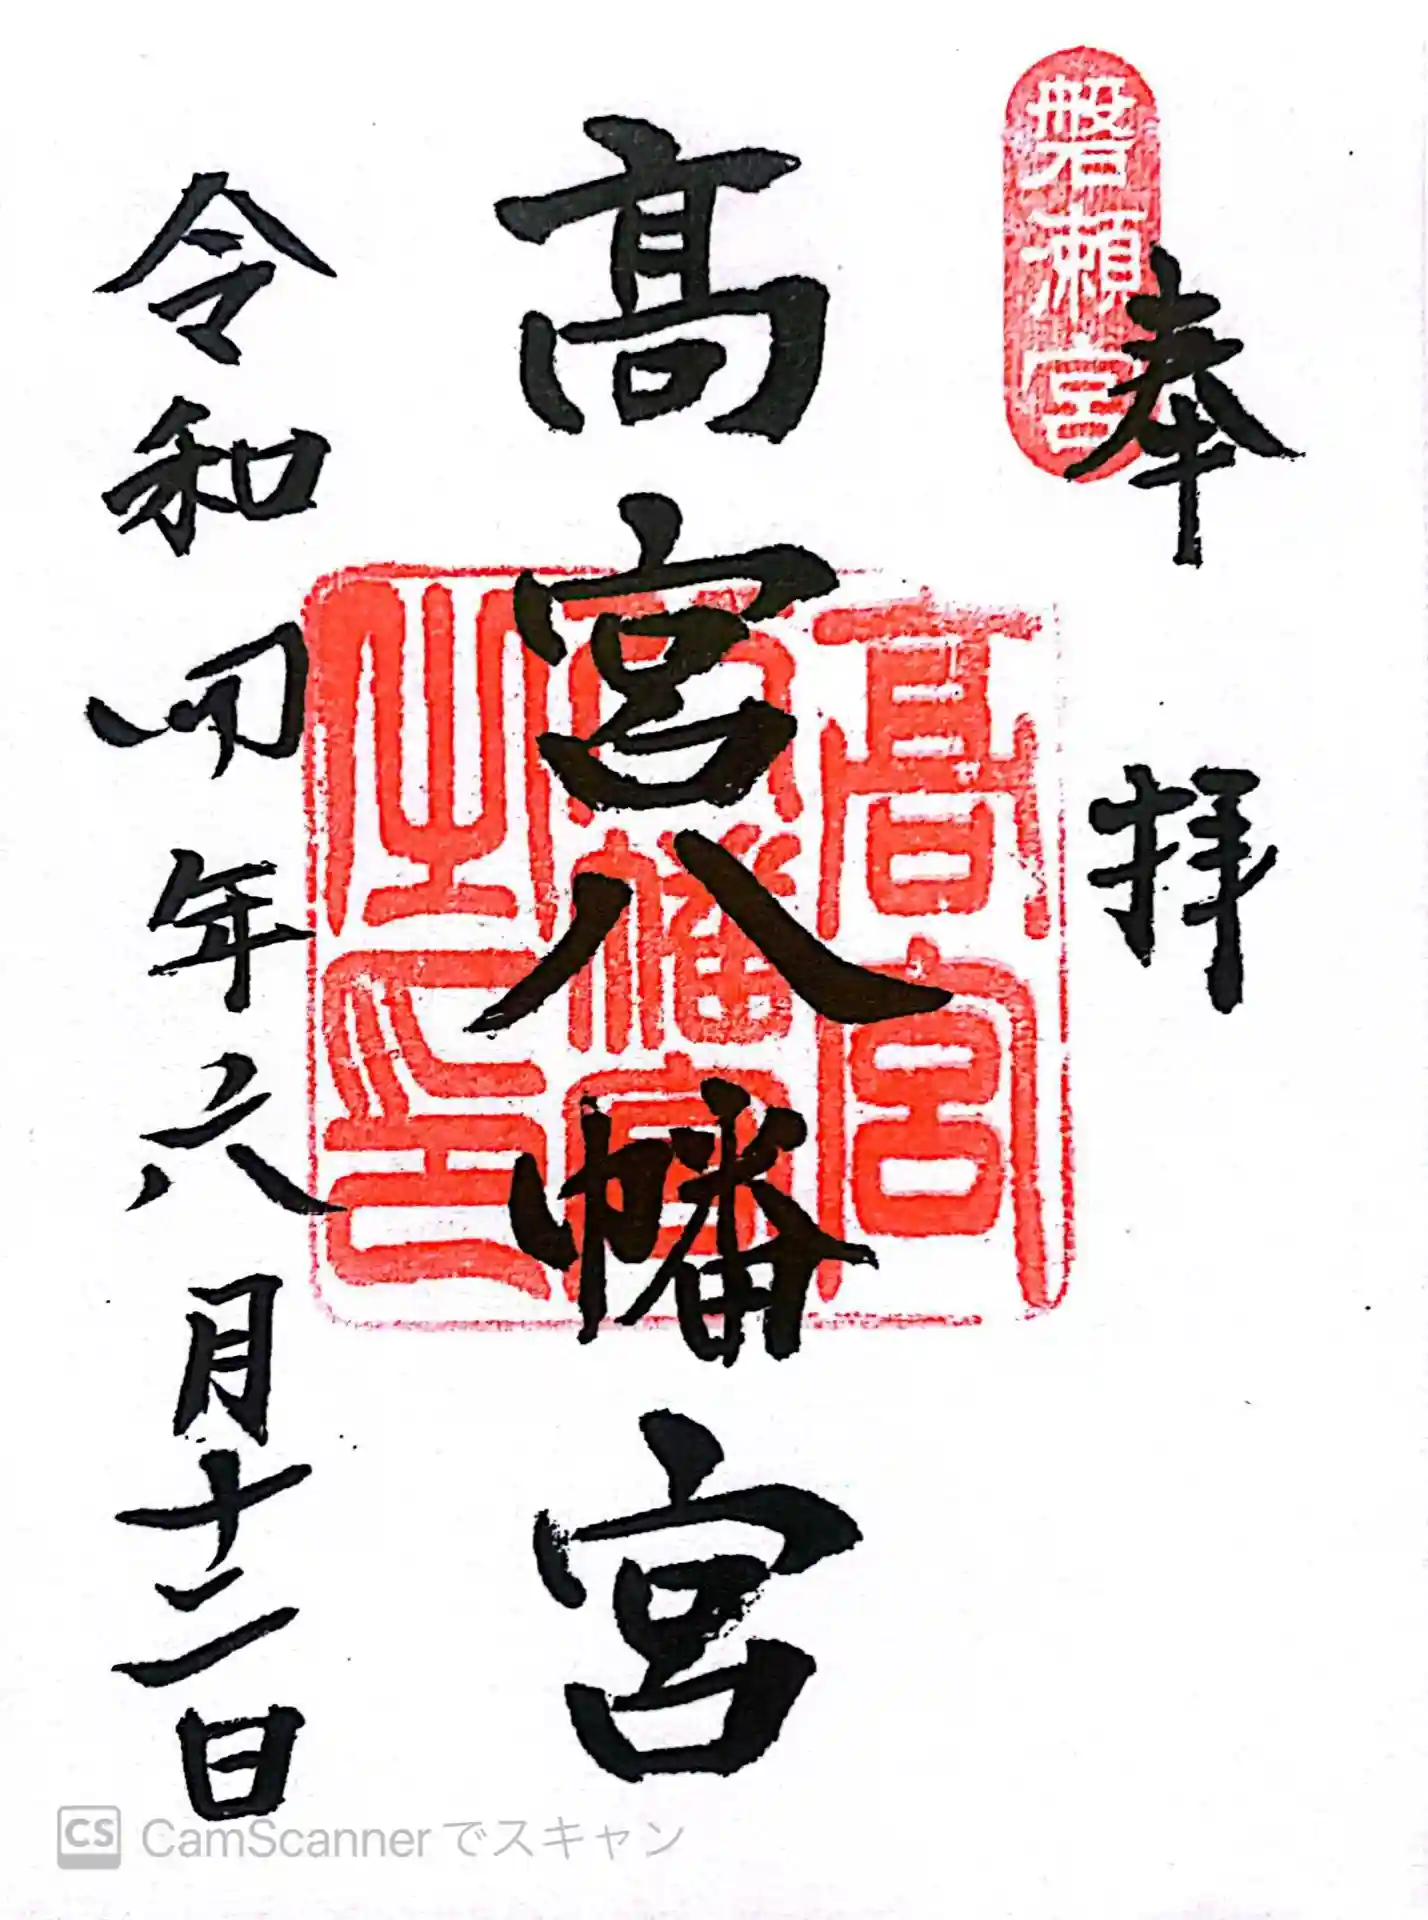 奉拝
磐瀬宮
髙宮八幡宮
高宮八幡宮之印
令和四年六月十二日
CS CamScannerでスキャン